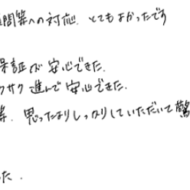 問等への対応、とてもよかったです
保証が安心できた.
サクサク進んで安心できた.
思ったよりしっかりしていただいて驚
た.